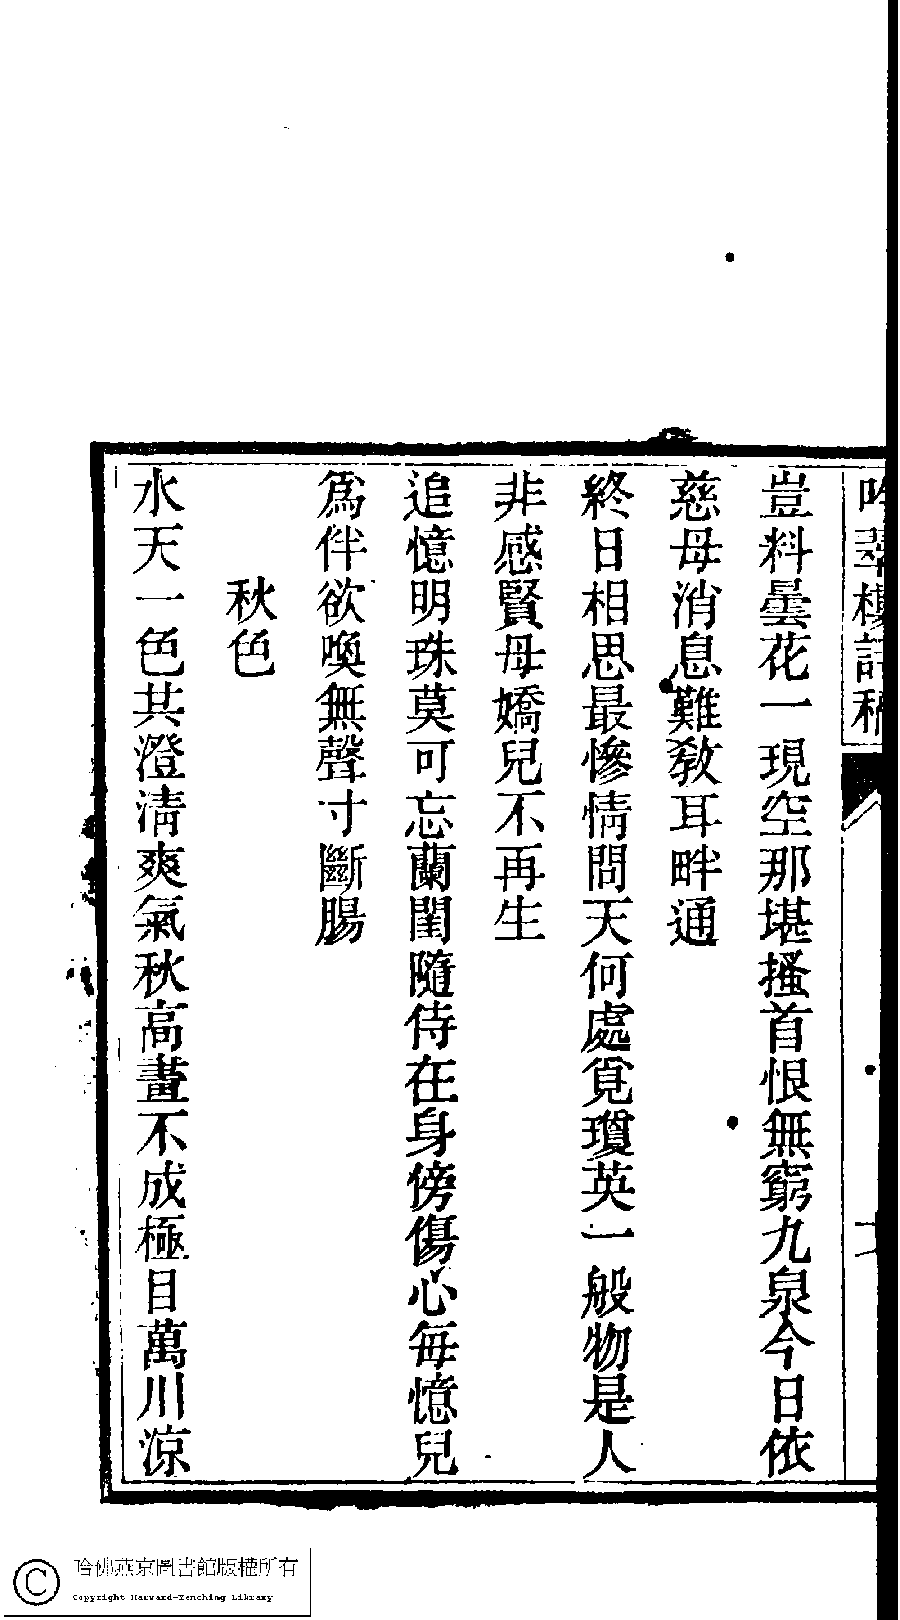 吟翠樓詩稿
豈料曇花一現空那堪搔首恨無窮九泉今日依
慈母消息難教耳畔通
終日相思最慘情問天何處覓瓊英一般物是人
非感賢母嬌兒不再生
追憶明珠莫可忘蘭閨隨侍在身傍傷心每憶兒
爲伴欲喚無聲寸斷腸
秋色
水天一色共澄清爽氣秋高畫不成極目萬川涼
哈佛燕京圖書館版權所有
Copyright Harvard-Yenching Library